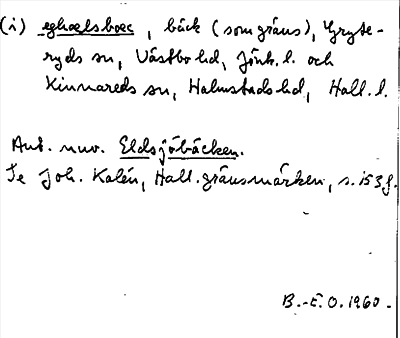 (i) eghælsboec, bäck (som gräns), Gryte-
ryds sn, Västbo hd, Jönk. l. och
Kinnareds sn, Halmstads hd, Hall. l.
Ant. nuv. Eldsjöbäcken.
Se Joh. Kalén, Hall. gränsmärken, s. 153 f.
B.-E. O. 1960.